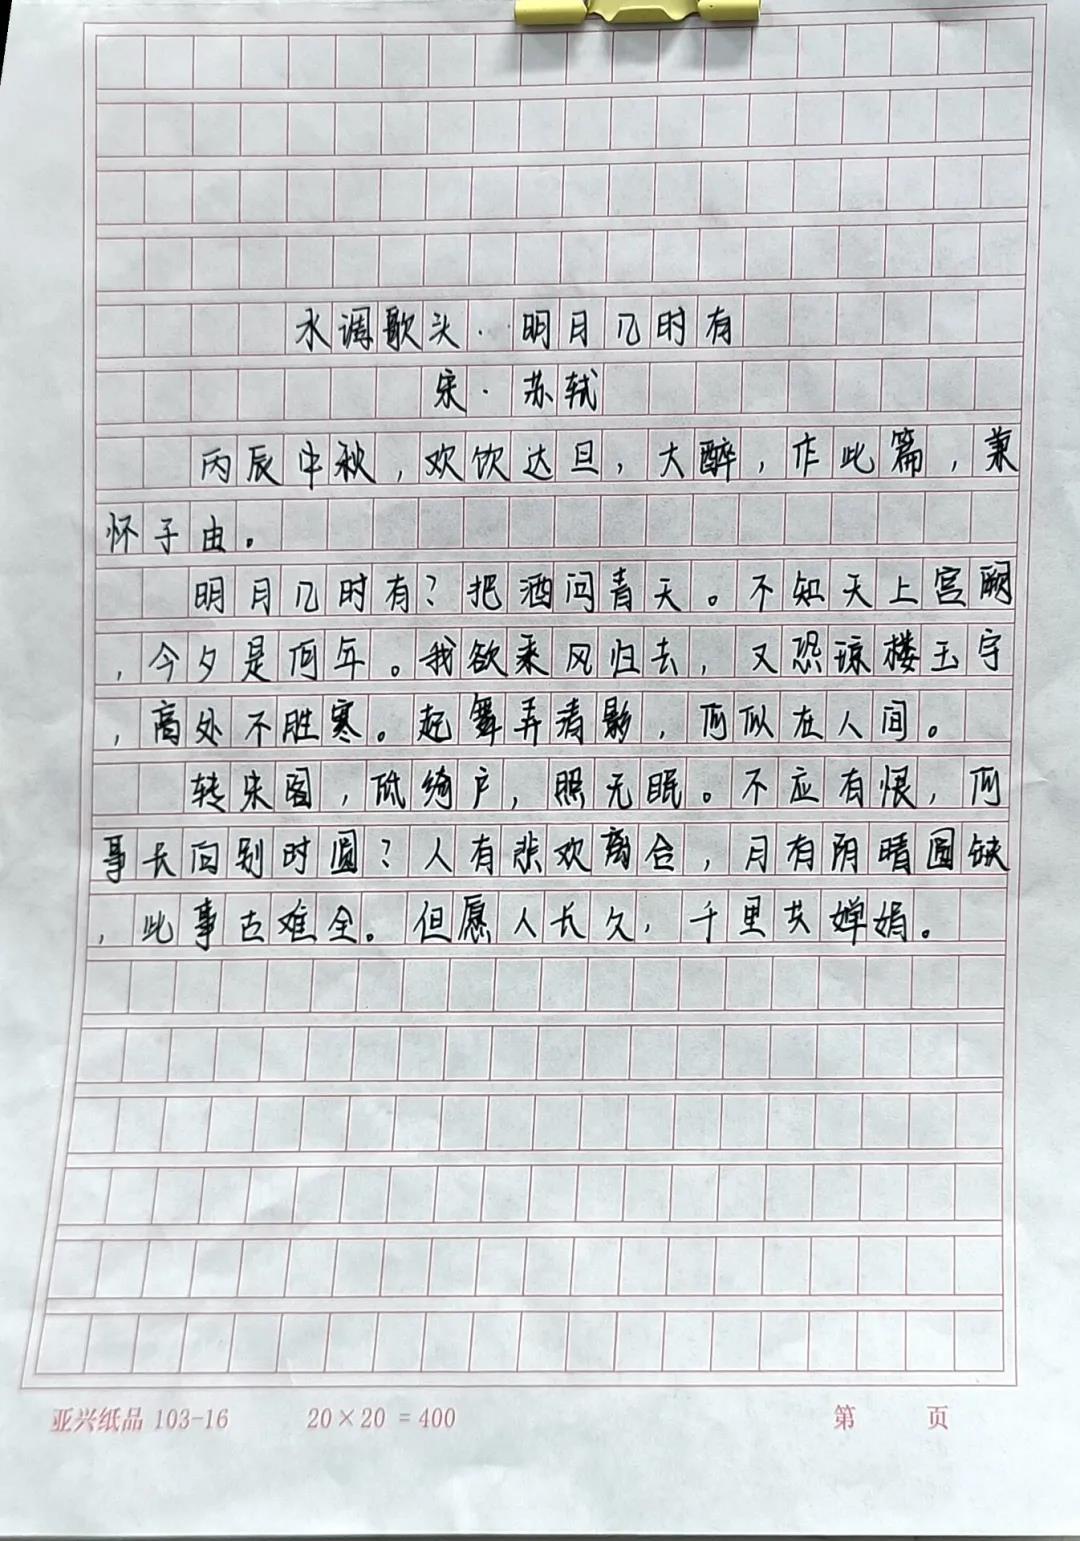 水调歌头·明月几时有
宋·苏轼
丙辰中秋，欢饮达旦，大醉，作此篇，兼
怀子由。
明月几时有？把酒问青天。不知天上宫阙
，今夕是何年。我欲乘风归去，又恐琼楼玉宇
，高处不胜寒。起舞弄清影，何似在人间。
转朱阁，低绮户，照无眠。不应有恨，何
事长向别时圆？人有悲欢离合，月有阴晴圆缺
，此事古难全。但愿人长久，千里共婵娟。
亚兴纸品 103-16 20×20=400 第 页